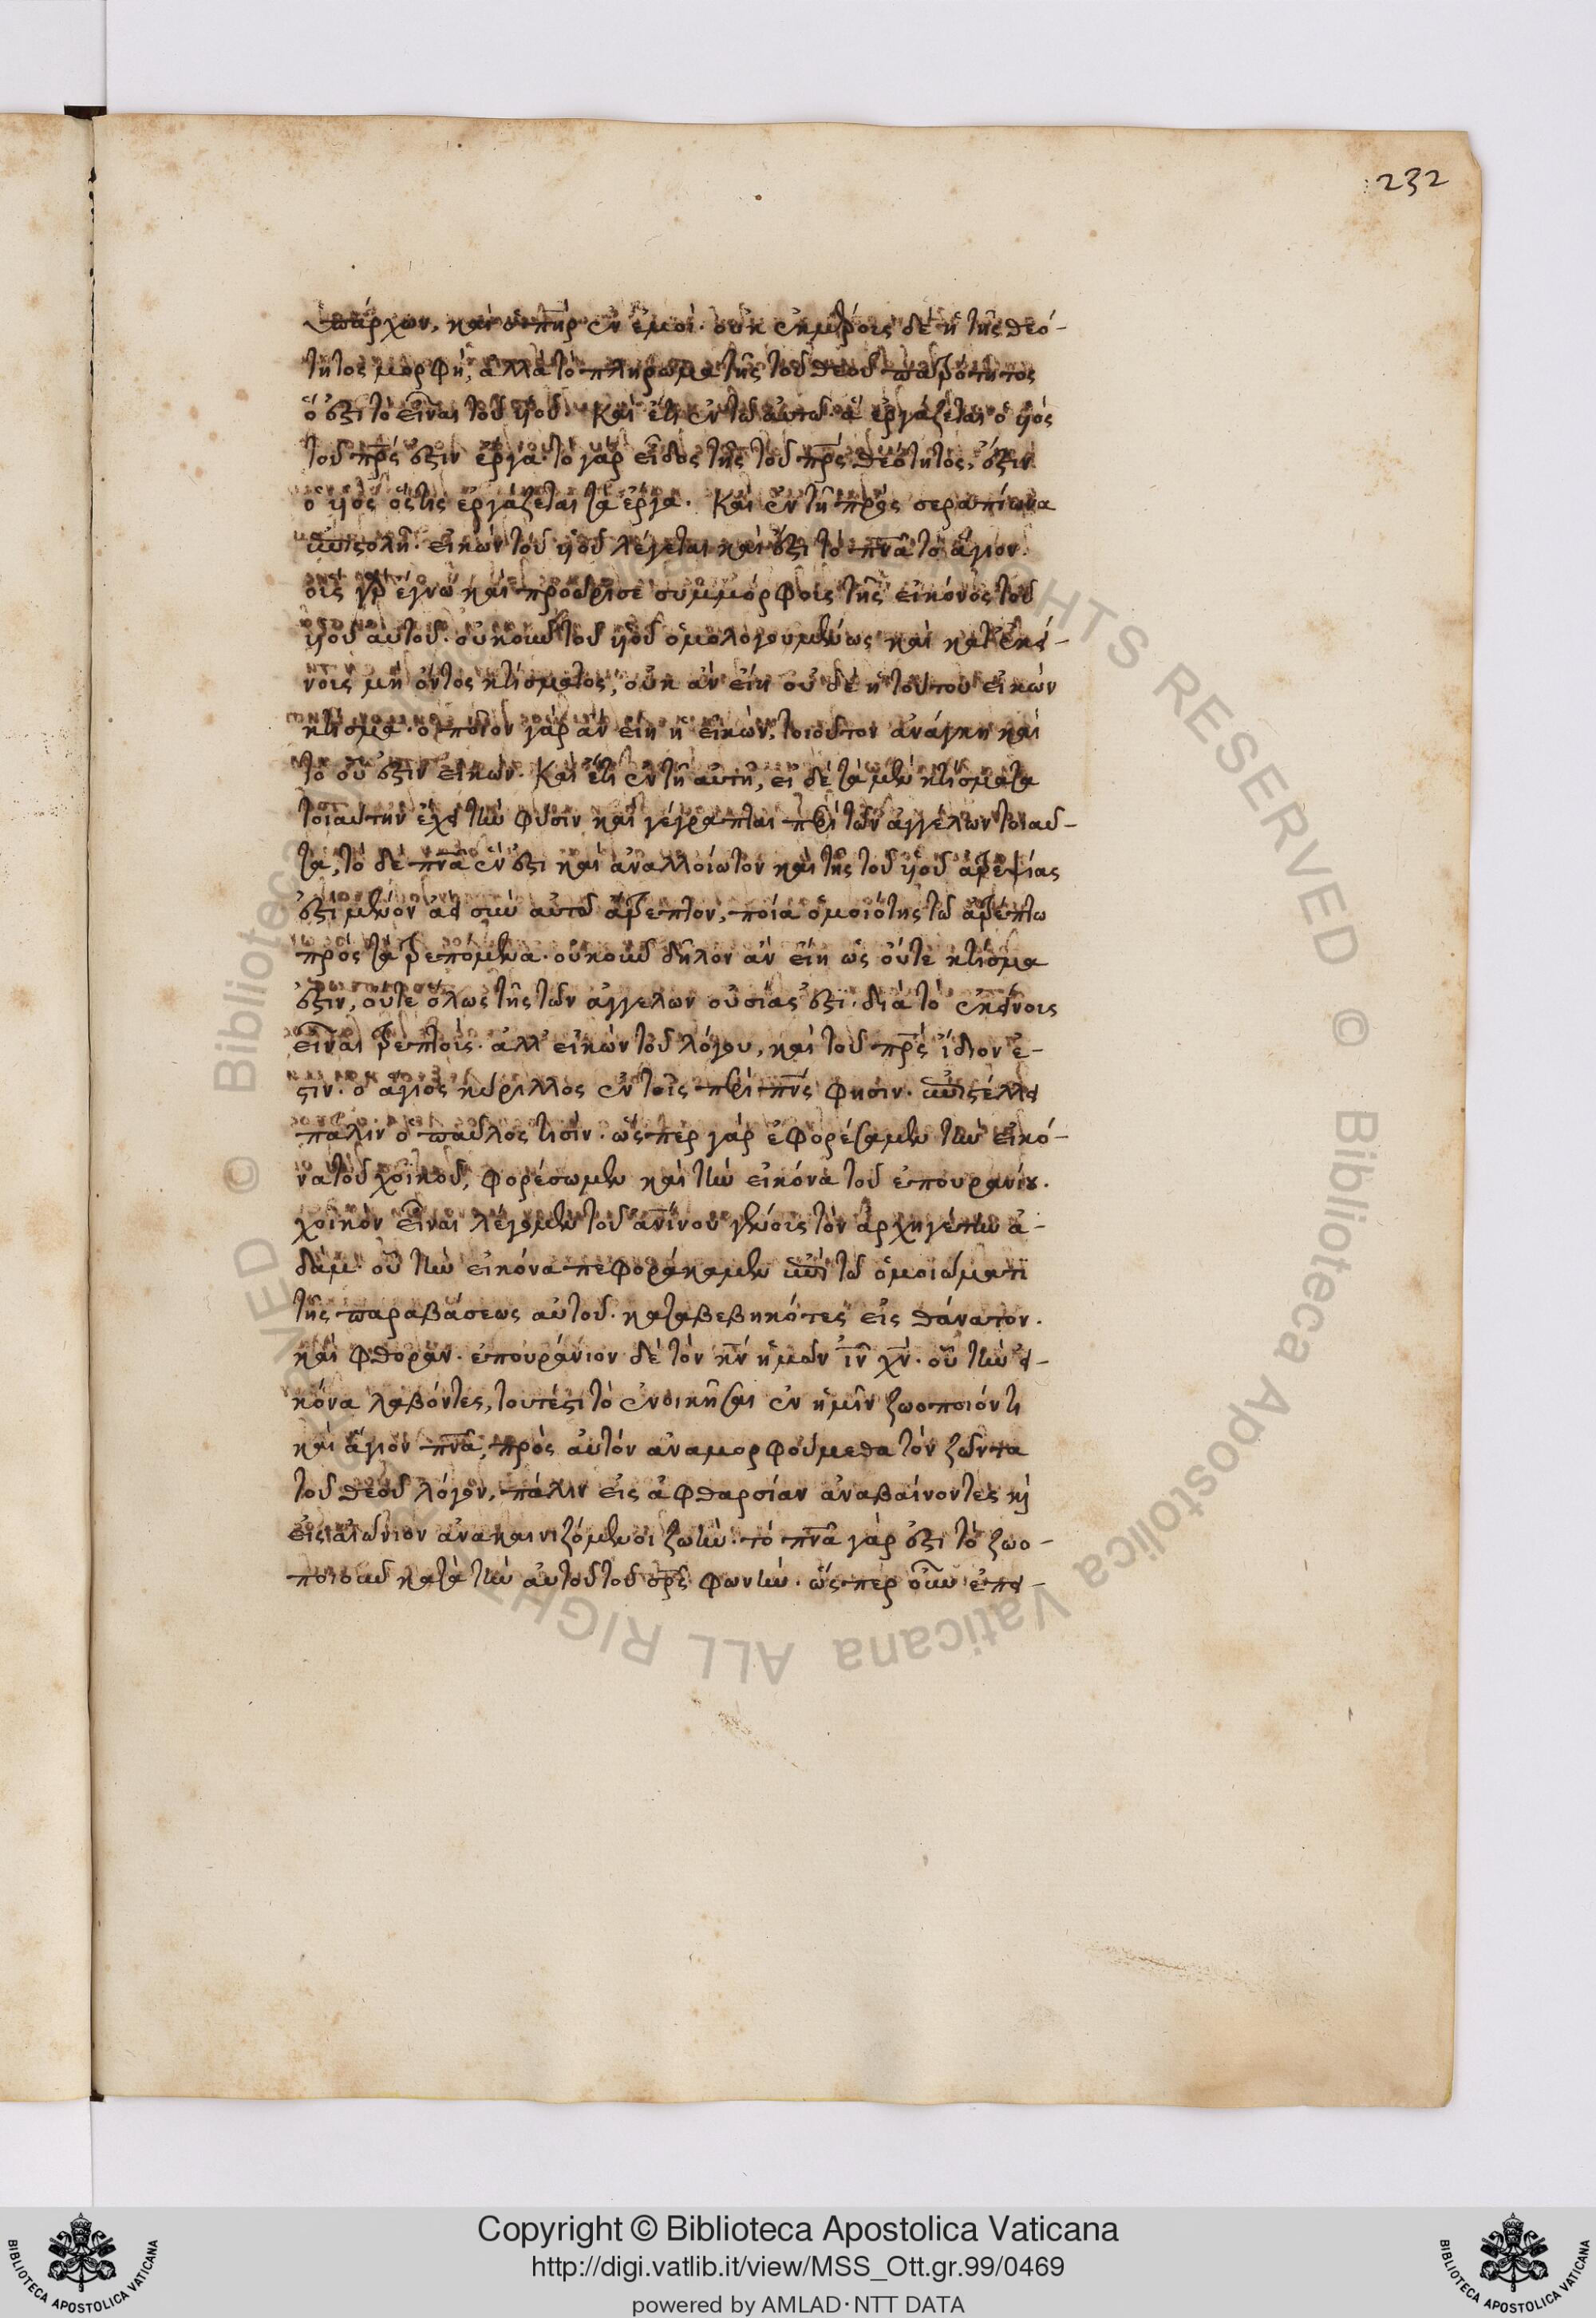 232
ὑπάρχων, καὶ ὁ πηρ ἐν ἐμοί. οὐκ ἐκμέρους δὲ ἡ τῆς θεό-
τητος μορφὴ, ἀλλὰ τὸ πλήρωμα τῆς τοῦ θεοῦ πατρότητος
ὅ ἐστι τὸ εἶναι τοῦ υἱοῦ. Καὶ ἔτι ἐν τῶ αὐτῶ. ἃ ἐργάζεται ὁ υἱὸς
τοῦ πρς ἐστιν ἔργα τὸ γὰρ εἶδος τῆς τοῦ πρς θεότητος, ἐστιν
ὁ υἱὸς ὅστις ἐργάζεται τὰ ἔργα. Καὶ ἐν τῆ πρὸς σεραπίωνα
ἐπιστολῆ. εἰκὼν τοῦ υἱοῦ λέγεται καὶ ἔστι τὸ πνα τὸ ἅγιον.
οὓς γὰρ ἔγνω καὶ προώρισε συμμόρφους τῆς εἰκόνος τοῦ
υἱοῦ αὐτοῦ. οὐκοῦν τοῦ υἱοῦ ὁμολογουμένως καὶ κατ' ἐκεί-
νοις μὴ ὄντος κτίσματος, οὐκ ἂν εἴη οὐδὲ ἡ τούτου εἰκὼν
κτίσμα. ὁποῖον γὰρ ἂν εἴη ἡ εἰκὼν, τοιοῦτον ἀνάγκη καὶ
τὸ οὗ ἐστιν εἰκών. Καὶ ἔτι ἐν τῆ αὐτῆ, εἰ δὲ τὰ μὲν κτίσματα
τοιαύτην ἔχει τὴν φύσιν καὶ γέγραπται περὶ τῶν ἀγγέλων τοιαῦ-
τα, τὸ δὲ πνα ἕν ἐστι καὶ ἀναλλοίωτον καὶ τῆς τοῦ υἱοῦ ἀτρεψίας
ἐστὶ μένον ἀεὶ σὺν αὐτῶ ἄτρεπτον, ποία ὁμοιότης τῶ ἀτρέπτω
πρὸς τὰ τρεπόμενα. οὐκοῦν δῆλον ἂν εἴη ὡς οὔτε κτίσμα
ἐστιν, οὔτε ὅλως τῆς τῶν ἀγγέλων οὐσίας ἐστί. διὰ τὸ ἐκείνοις
εἶναι τρεπτοῖς. ἀλλ' εἰκὼν τοῦ λόγου, καὶ τοῦ πρς ἴδιον ἐ-
στιν. ὁ ἅγιος κύριλλος ἐν τοῖς περὶ πνς φησιν. ἐπιστέλλει
πάλιν ὁ παῦλος τισίν. ὥσπερ γὰρ ἐφορέσαμεν τὴν εἰκό-
να τοῦ χοϊκοῦ, φορέσωμεν καὶ τὴν εἰκόνα τοῦ ἐπουρανίου.
χοϊκὸν εἶναι λέγομεν τοῦ ἀνίνου γένους τὸν ἀρχηγέτην ἀ-
δάμ. οὗ τὴν εἰκόνα πεφορήκαμεν ἐπὶ τῶ ὁμοιώματι
τῆς παραβάσεως αὐτοῦ. καταβεβηκότες εἰς θάνατον.
καὶ φθοράν. ἐπουράνιον δὲ τὸν κν ἡμῶν ιν χν. οὗ τὴν εἰ-
κόνα λαβόντες, τουτέστι τὸ ἐνοικῆσαι ἐν ἡμῖν ζωοποιόν τι
καὶ ἅγιον πνα, πρὸς αὐτὸν ἀναμορφούμεθα τὸν ζῶντα
τοῦ θεοῦ λόγον, πάλιν εἰς ἀφθαρσίαν ἀναβαίνοντες κ
εἰς αἰώνιον ἀνακαινιζόμενοι ζωήν. τὸ πνα γὰρ ἐστι τὸ ζωο-
ποιοῦν κατὰ τὴν αὐτοῦ τοῦ σρς φωνήν. ὥσπερ οὖν ἐπει-
© Biblioteca Apostolica Vaticana ALL RIGHTS RESERVED © Biblioteca Apostolica Vaticana ALL RIGHTS RESERVED
Copyright © Biblioteca Apostolica Vaticana
http://digi.vatlib.it/view/MSS_Ott.gr.99/0469
powered by AMLAD·NTT DATA
BIBLIOTECA APOSTOLICA VATICANA
BIBLIOTECA APOSTOLICA VATICANA